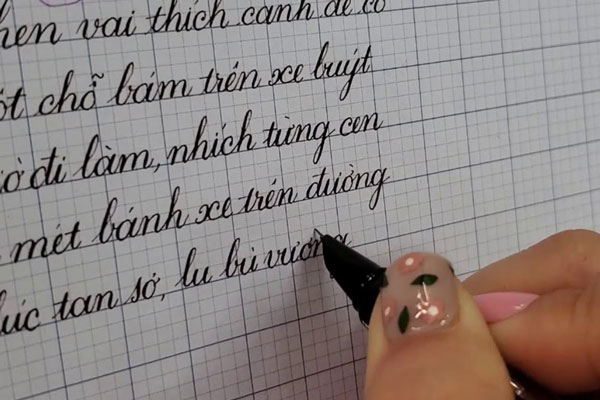 hen vai thích cánh để có
ột chỗ bám trên xe buýt
ờ đi làm, nhích từng cen
mét bánh xe trên đường
lúc tan sở, lu bù